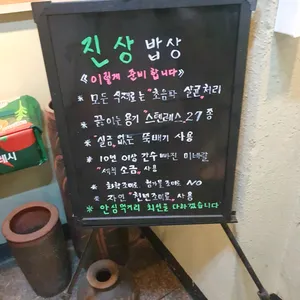 진상 밥상
《이렇게 준비합니다》
※ 모든 식재료는 "초음파 살균처리
※ 끓이는 용기 "스텐레스 27종
※ 실금 없는 뚝배기 사용
※ 10년 이상 간수 빠진 미네랄
소금 사용
※ 화학조미료 NO
※ 자연 "천연조미료 사용
※ 안심먹거리 최선을 다하겠습니다